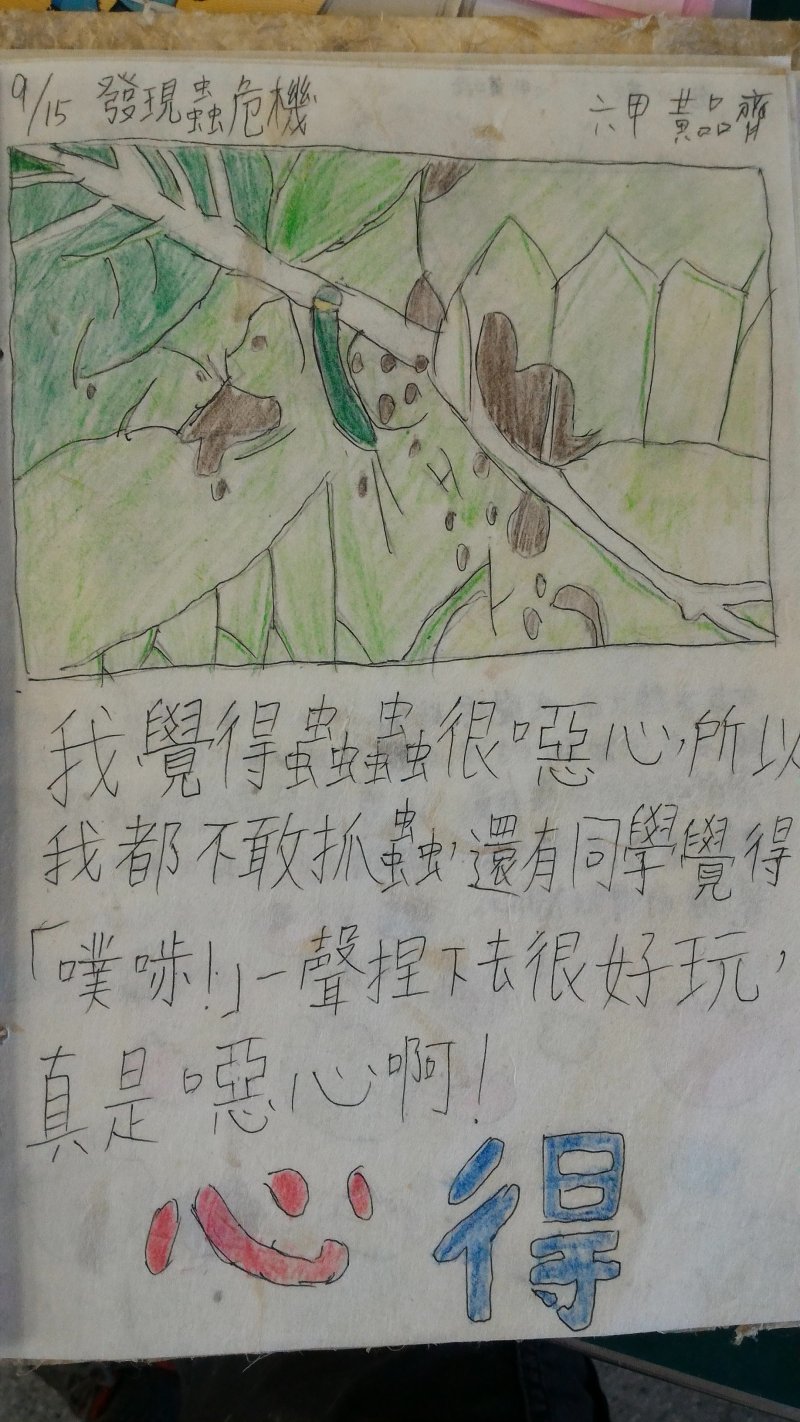 9/15 發現蟲危機 六甲 黃品齊
我覺得蟲蟲很噁心,所以
我都不敢抓蟲,還有同學覺得
「噗哧!」一聲捏下去很好玩,
真是噁心啊!
心得